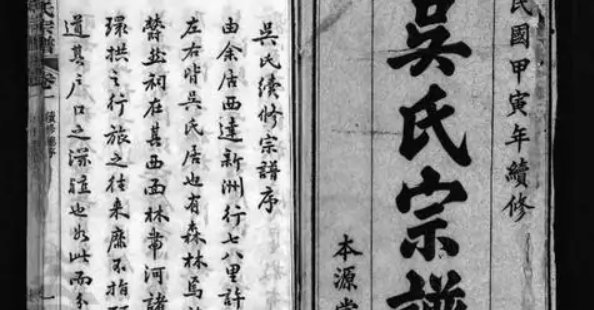 民國甲寅年續修
吳氏宗譜
本源堂
吳氏續修宗譜序
由余居西達新洲行七八里許
左右皆吳氏居也有森林焉
鬱盤祠在其西西林帶河諸
環拱之行旅之往來靡不指
道其戶口之深窪也如此而
氏宗譜
卷一
續修譜序